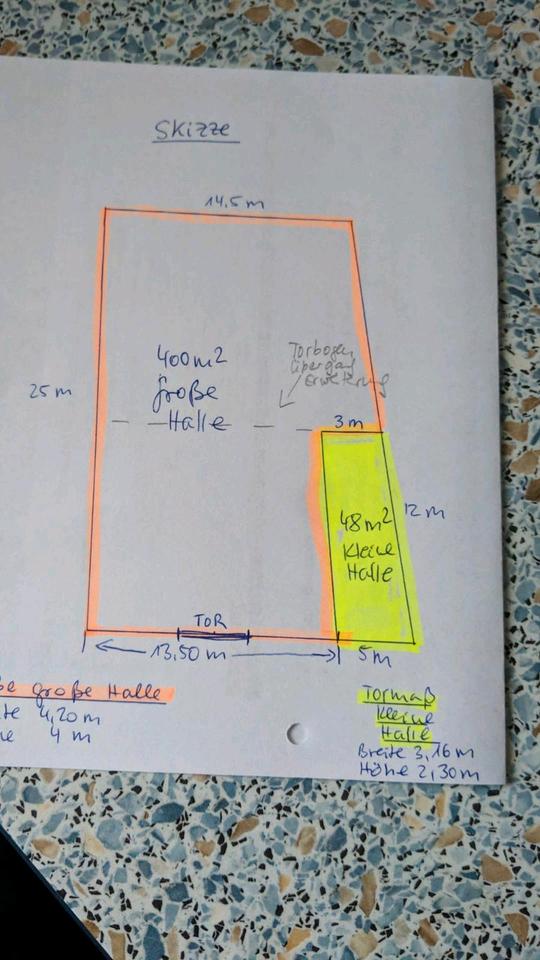 Skizze
14,5 m
400m2
große
Halle
Torbogen
übergang
25 m
3m
12 m
48m2
Kleine
Halle
TOR
13,50 m
5m
ße große Halle
te 4,20m
he 4 m
Tormaß
Kleine
Halle
Breite 3,16 m
Höhe 2,30m